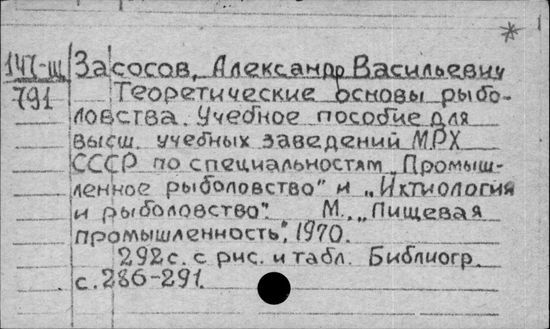 147-щ Засосов, Александр Васильевич
791 Теоретические основы рыбо-
ловства. Учебное пособие для
высш. учебных заведений МРХ
СССР по специальностям „Промыш-
ленное рыболовство" и „Ихтиология
и рыболовство". М., „Пищевая
промышленность", 1970.
292 с. с рис. и табл. Библиогр.
с. 286-291.